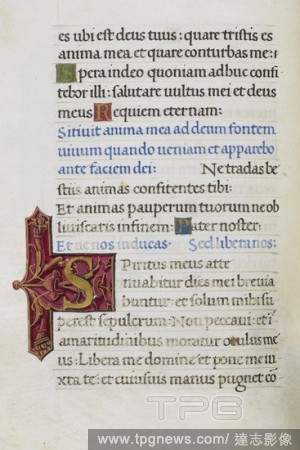 es ubi est deus tuus: quare tristis es
anima mea et quare conturbas me:
Spera in deo quoniam adhuc confi
tebor illi: salutare vultus mei et deus
meus Requiem eternam:
Sitivit anima mea ad deum fontem
vivum quando veniam et apparebo
ante faciem dei: Ne tradas be
stiis animas confitentes tibi:
Et animas pauperum tuorum ne ob
liviscaris in finem: Pater noster:
Et ne nos inducas: Sed libera nos:
Spiritus meus atte
nuabitur dies mei brevia
buntur: et solum mihi su
perest sepulcrum: Non peccavi: et i
amaritudinibus moratur oculus me
us: Libera me domine et pone me iu
xta te: et cuiusvis manus pugnet co
TPG
www.tpgnews.com/達志影像